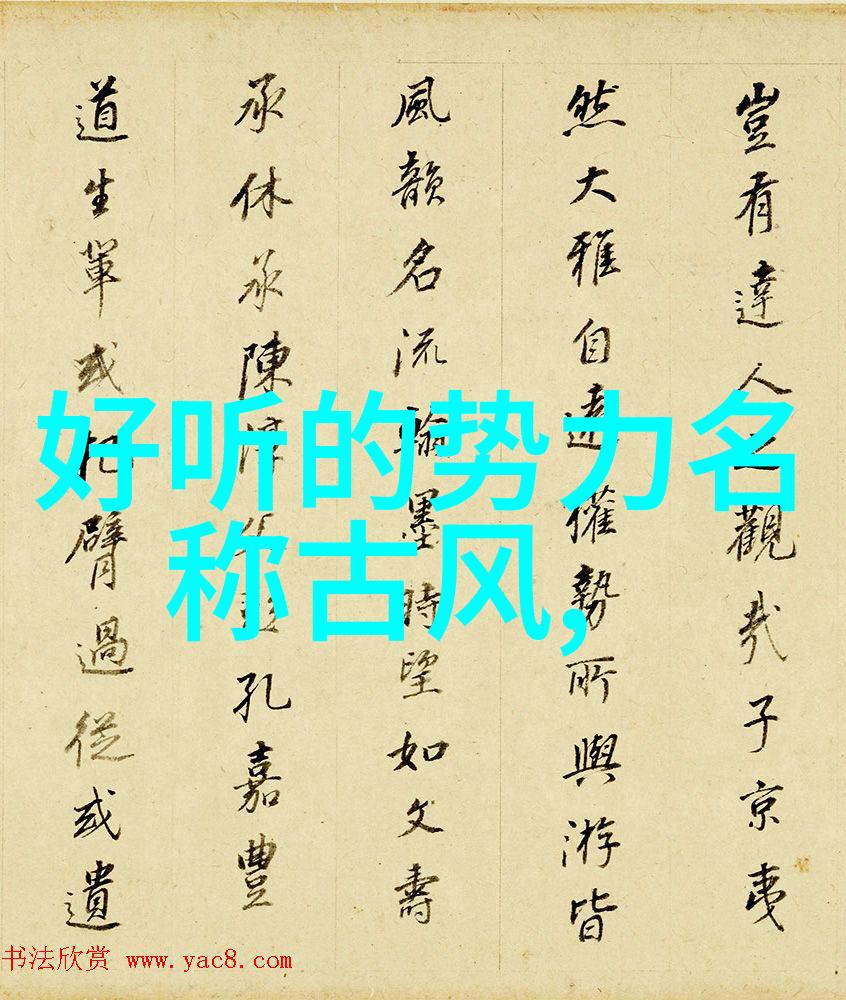 豈有達人之觀哉子京夷
然大雅自遠權勢所與游皆
風韻名流翰墨時望如文壽
承休承陳淳父彭孔嘉豐
道生輩或把臂過從或遺
好听的势力名
称古风,
书法欣赏 www.yac8.com